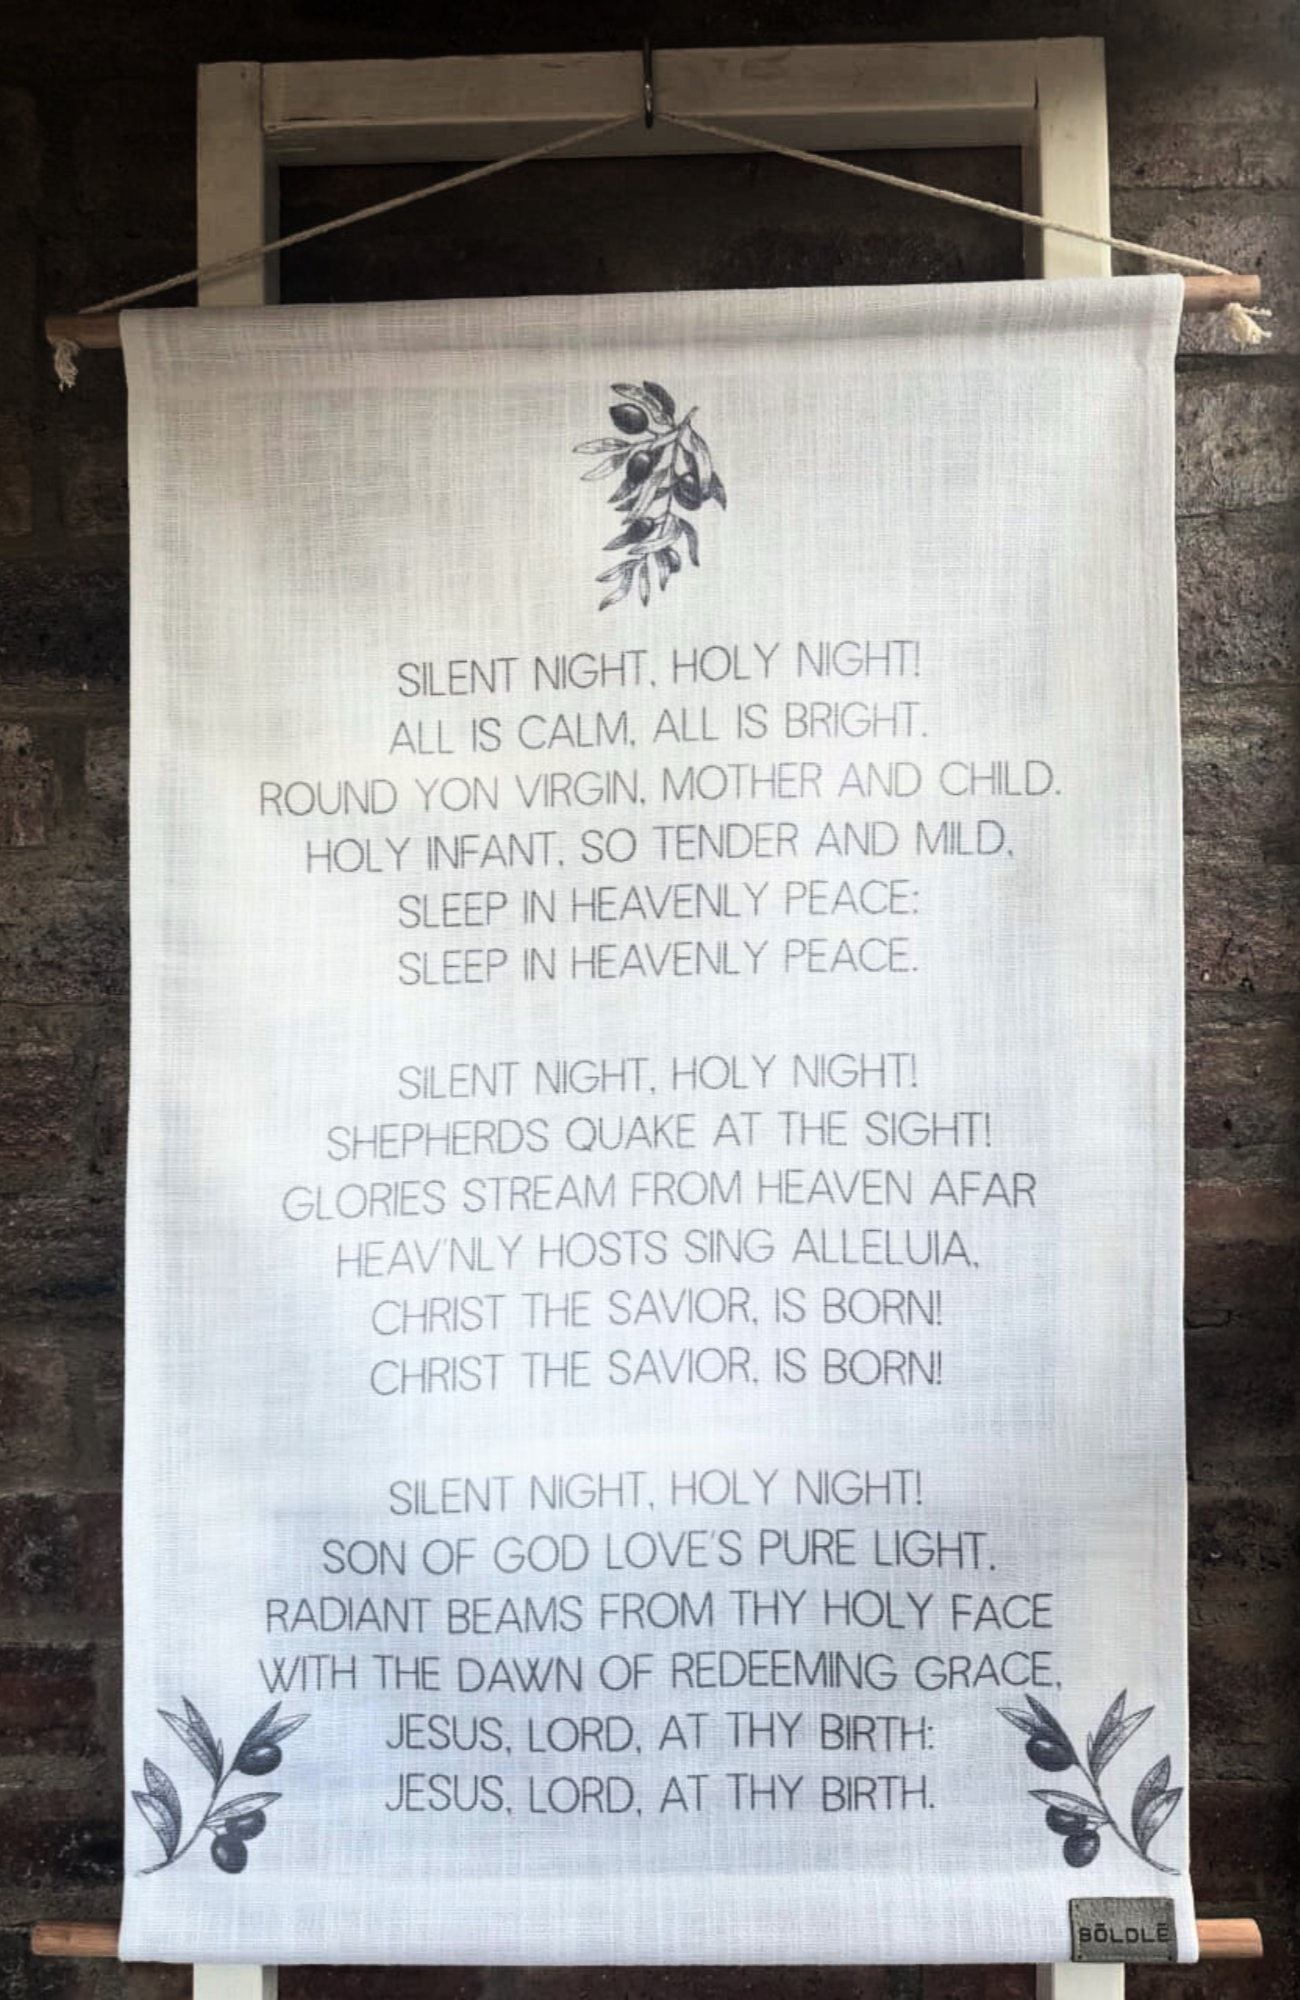 SILENT NIGHT, HOLY NIGHT!
ALL IS CALM, ALL IS BRIGHT.
ROUND YON VIRGIN, MOTHER AND CHILD.
HOLY INFANT, SO TENDER AND MILD,
SLEEP IN HEAVENLY PEACE;
SLEEP IN HEAVENLY PEACE.
SILENT NIGHT, HOLY NIGHT!
SHEPHERDS QUAKE AT THE SIGHT!
GLORIES STREAM FROM HEAVEN AFAR
HEAV'NLY HOSTS SING ALLELUIA,
CHRIST THE SAVIOR, IS BORN!
CHRIST THE SAVIOR, IS BORN!
SILENT NIGHT, HOLY NIGHT!
SON OF GOD LOVE'S PURE LIGHT.
RADIANT BEAMS FROM THY HOLY FACE
WITH THE DAWN OF REDEEMING GRACE,
JESUS, LORD, AT THY BIRTH;
JESUS, LORD, AT THY BIRTH.
SŌLDLĒ